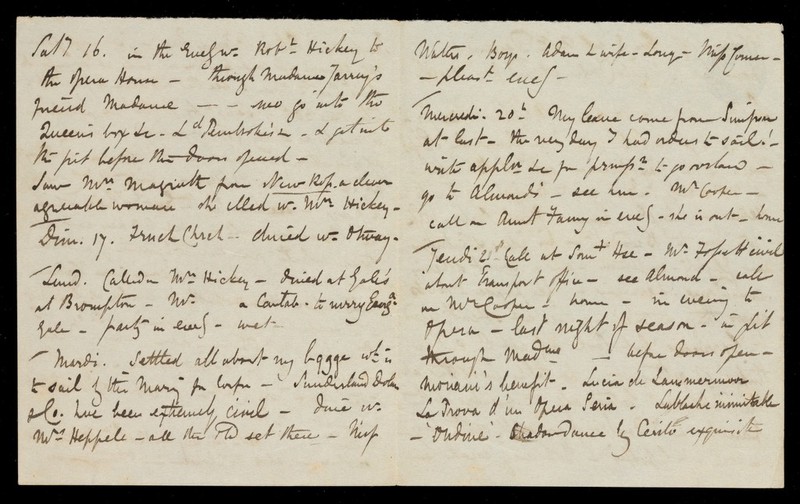 Sat 16. in the Eveg wn Robt. Hickey to
the Opera House - through Madame
friend Madame - - - we go into the
Queen's box &c - Ld Pembroke's - & get into
the pit before the doors opened -
Saw Mrs from New a clever
agreeable woman she dined w. Mrs Hickey -
Dim. 17. French Chrch - dined wn Otway -
Lund. Called on Mrs Hickey - dined at Gale's
at Brompton - Mr. a Cantab. - to marry
Gale - party in eveg - wet -
Mardi. Settled all about my baggage wh. is
to sail by the Mary for - Sunderland
& Co. have been extremely civil - dine wn
Mrs Heppel - all the old set there - Miss
Walters. Boys. Adam & wife - Long - Miss
- pleast. eveg -
Mercredi. 20th My leave come from
at last - the very day I had orders to sail! -
write &c for to go overland -
go to Almond's - see him. Mr Cooper -
call on Aunt Fanny in eveg - she is out - home
Jeudi 21st Call at Somt Hse - Mr. civil
about Transport office - see Almond - call
on Mr Cooper - home - in evening to
Opera - last night of season - in pit
through Madme - before doors open -
Moriani's benefit - Lucia de Lammermoor
La Prova d'un Opera Seria - Lablache inimitable
- 'Ondine' - Shadow Dance by Cerito exquisite